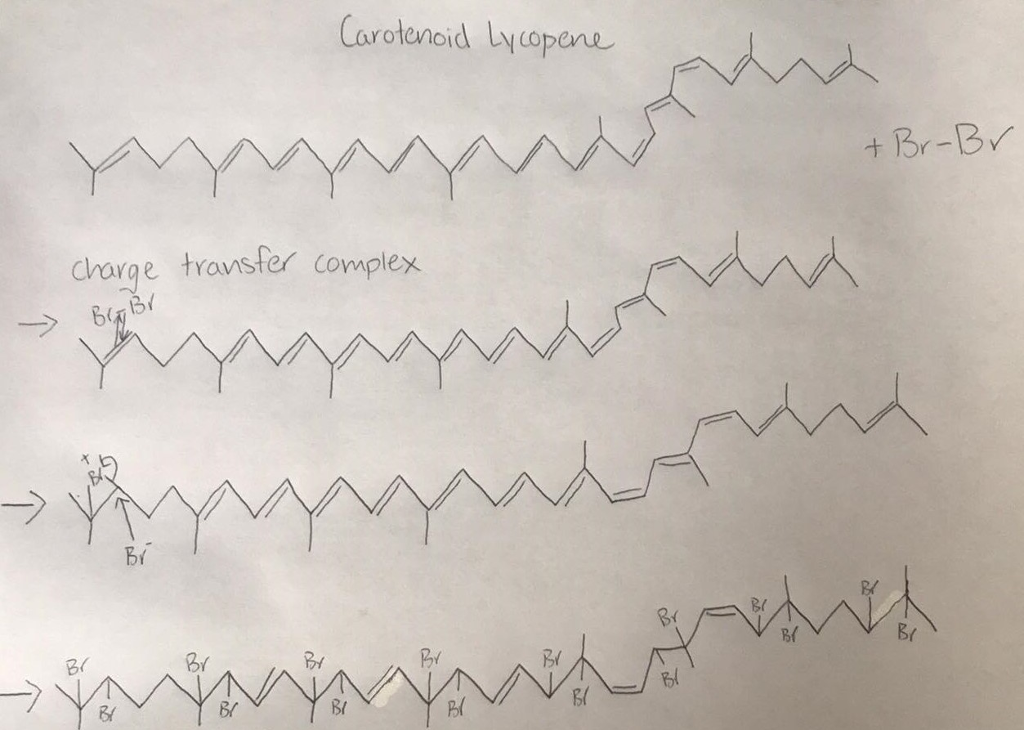 Carotenoid Lycopene
+ Br-Br
charge transfer complex
→ Br-Br
→ + Br
Br⁻
Br Br Br Br Br Br Br Br
→ Br Br Br Br Br Br Br Br